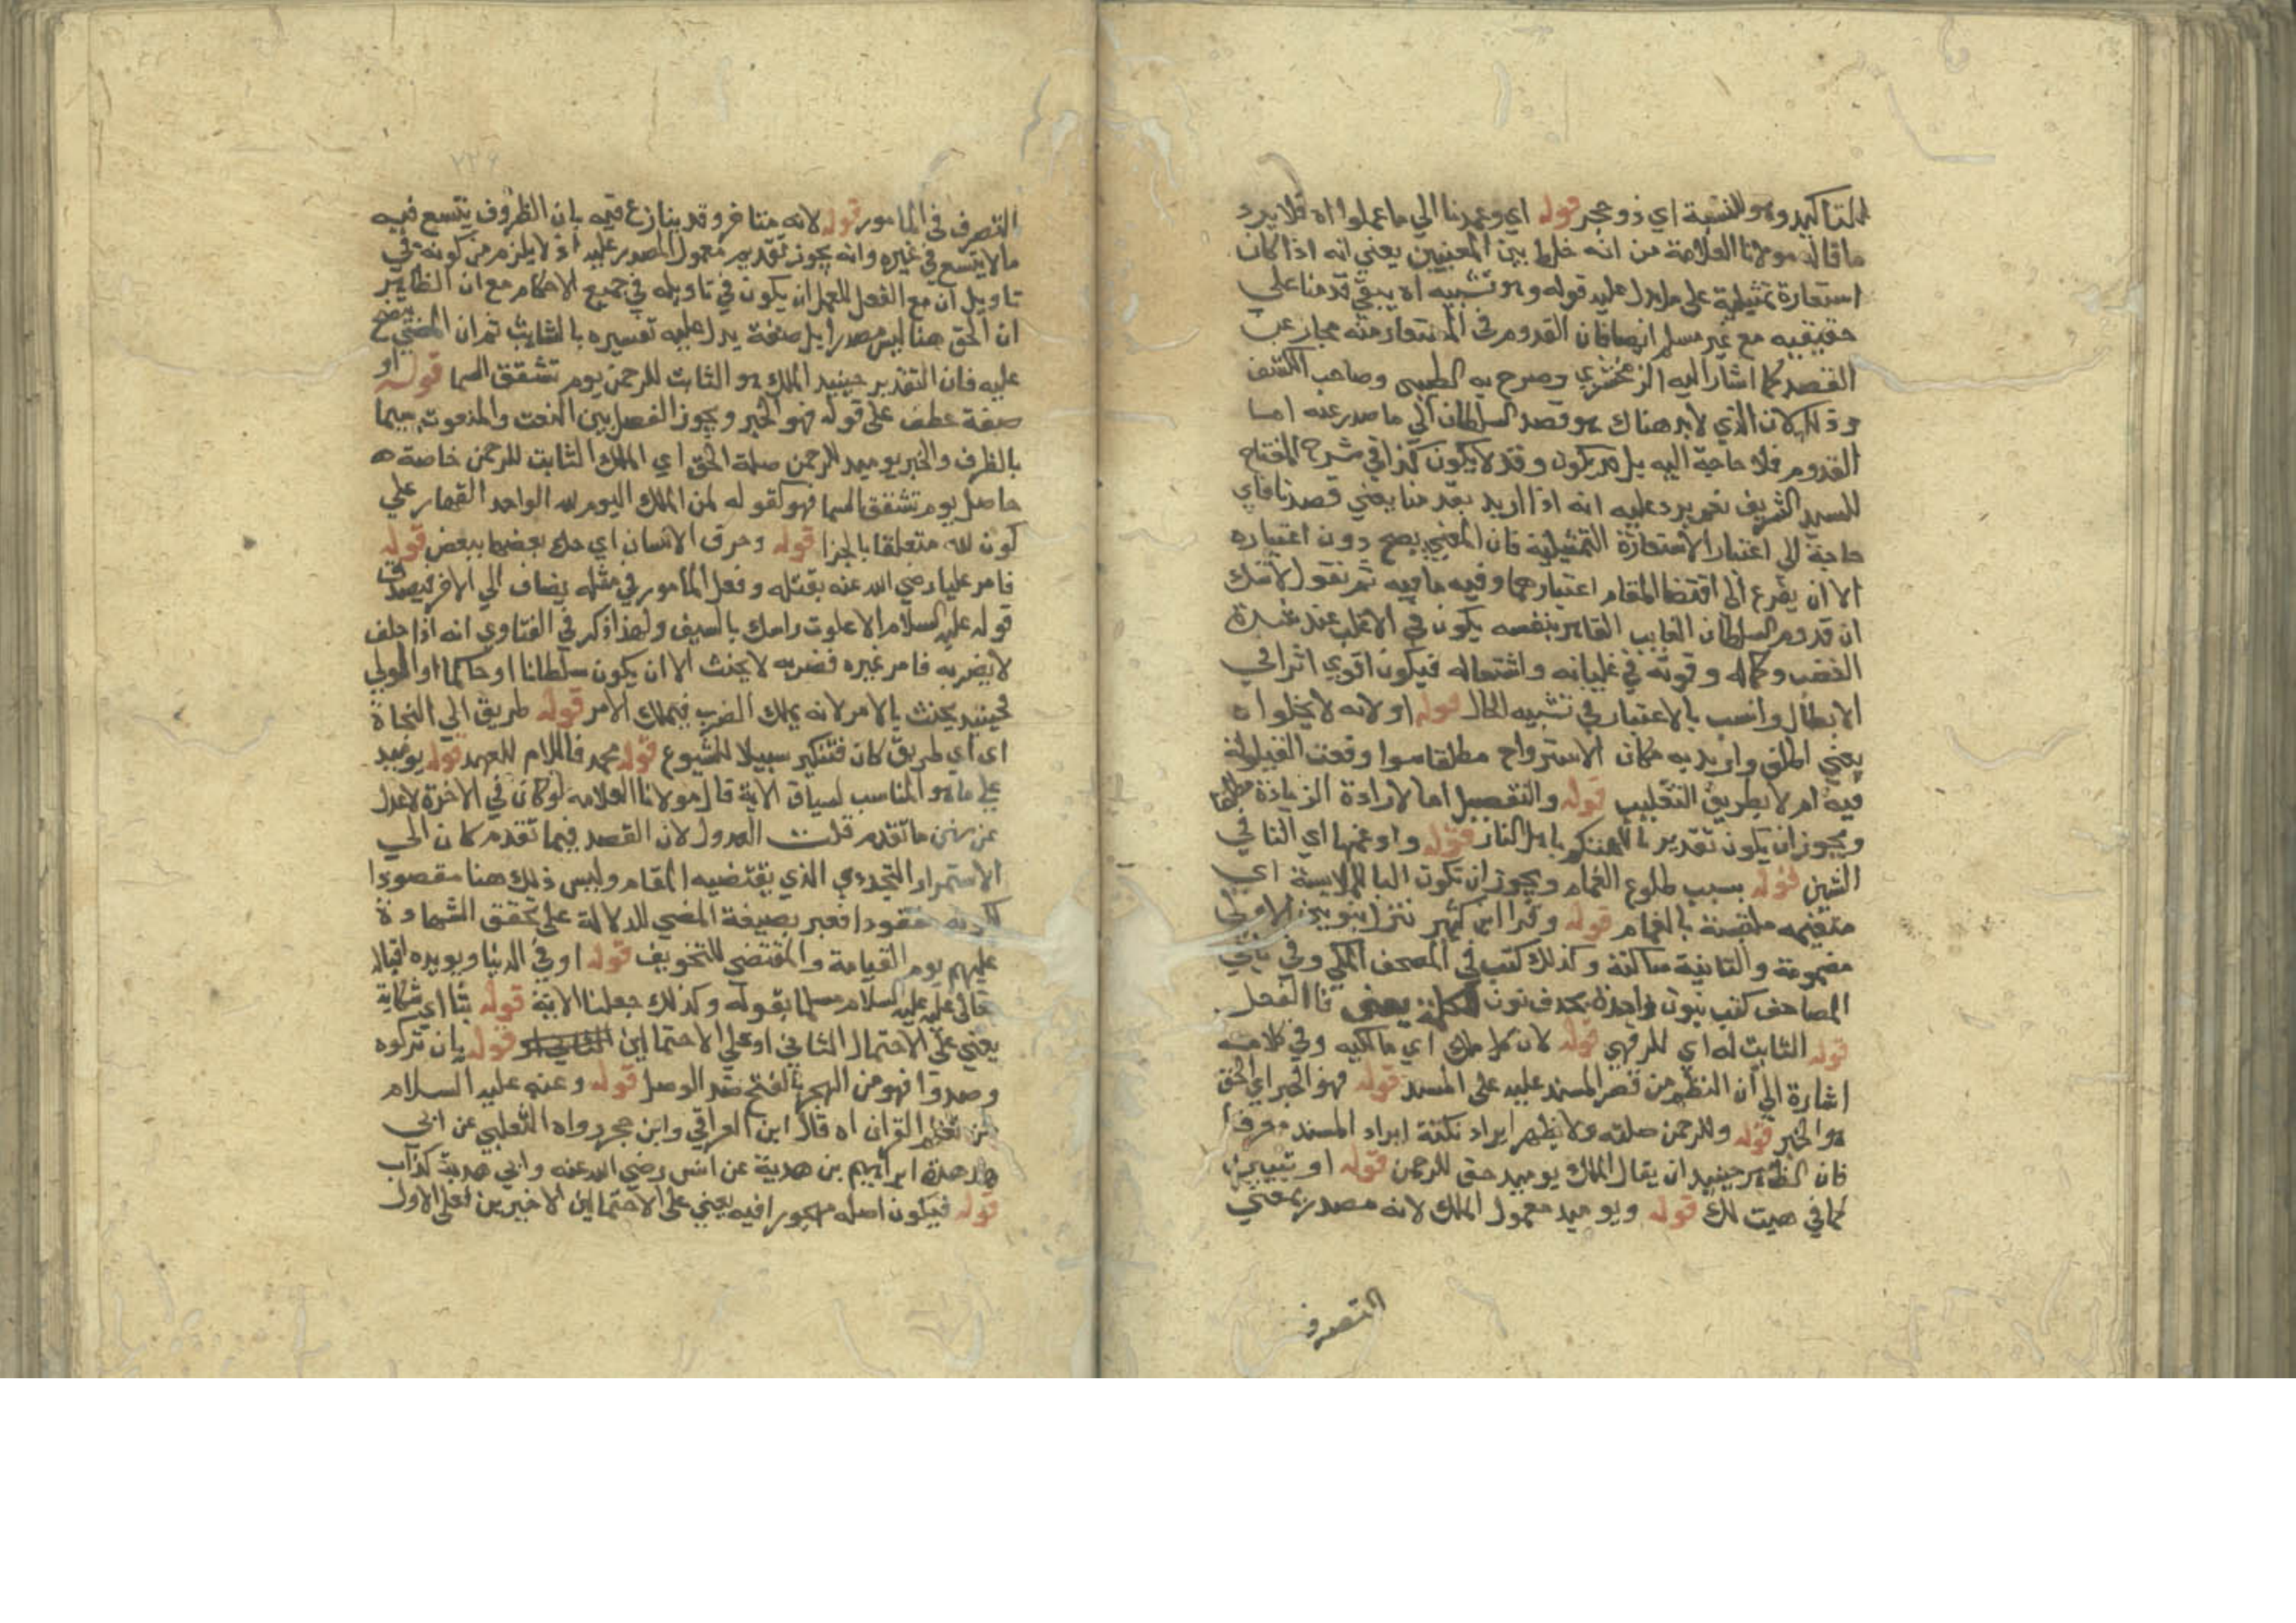 للتاكيد وهو للنسبة اي ذو حجر قوله اي وعمدنا الي ما عملوا اه فلا يرد
ما قاله مولانا العلامة من انه خلط بين المعنيين يعني انه اذا كان
استعارة تمثيلية على ما يدل عليه قوله وهو تشبيه اه يبقي قدمنا على
حقيقيه مع غير مسلم ايضا فان القدوم في المستعار منه مجاز عن
القصد كما اشار اليه الزمخشري وصرح به الطيبي وصاحب الكشف
وذلك لان الذي لابد هناك هو قصد السلطان الي ما صدر عنه اما
القدوم فلا حاجة اليه بل قد يكون وقد لا يكون كذا في شرح المفتاح
للسيد الشريف نعم يرد عليه انه اذا اريد بقدمنا يعني قصدنا فاي
حاجة الي اعتبار الاستعارة التمثيلية فان المعني يصح دون اعتباره
الا ان يفرع الي اقتضا المقام اعتبارهما وفيه ما فيه ثم نقول لا شك
ان قدوم السلطان الغايب القاهر بنفسه يكون في الاغلب عند شدة
الغضب وكماله وقوته في غليانه واشتعاله فيكون اقوي اثرا في
الابطال وانسب بالاعتبار في تشبيه الحال قوله او لانه لا يخلوا اه
يعني اطلق واريد به مكان الاسترواح مطلقا سوا وقعت القيلولة
فيه ام لا بطريق التغليب قوله والتفضيل اما لارادة الزيادة مطلقا
ويجوز ان يكون تقدير باهل النار قوله واو عنها اي التا في
الشين قوله بسبب طلوع الغمام ويجوز ان تكون البا للملابسة اي
متغيمه ملتبسة بالغمام قوله وقرا ابن كثير ننزل بنونين الاولى
مضمومة والثانية ساكنة وكذلك كتب في المصحف المكي وفي باقي
المصاحف كتب بنون واحدة بحذف نون الكلمة يعني فا الفعل
قوله الثابت له اي للرحمن قوله لان كل ملك اي مالكيه وفي كلامه
اشارة الي ان النظم من قصر المسند عليه على المسند قوله فهو الخبر اي الحق
هو الخبر قوله وللرحمن صلته ولا يظهر ايراد نكتة ايراد المسند معرفا
فان الظاهر حينيد ان يقال الملك يوميد حق للرحمن قوله او تبيين
كما في هيت لك قوله ويوميد معمول الملك لانه مصدر بمعني
التصرف
التصرف في المامور قوله لانه متاخر وقد ينازع فيه بان الظروف يتسع فيه
ما لا يتسع في غيره وانه يجوز تقديم معمول المصدر عليه اذ لا يلزم من كونه في
تاويل ان مع الفعل للعمل ان يكون في تاويله في جميع الاحكام مع ان الظاهر
ان الحق هنا ليس مصدرا بل صفة يدل عليه تفسيره بالثابت ثم ان المعني يتضح
عليه فان التقدير حينيد الملك هو الثابت للرحمن يوم تشقق السما قوله او
صفة عطف على قوله فهو الخبر ويجوز الفصل بين النعت والمنعوت سيما
بالظرف والخبر يوميد للرحمن صلة الحق اي الملك الثابت للرحمن خاصة
حاصل يوم تشقق السما فهو كقوله لمن الملك اليوم لله الواحد القهار علي
كون لله متعلقا بالجزا قوله وحرق الاسنان اي حك بعضها ببعض قوله
فامر عليا رضي الله عنه بقتله وفعل المأمور في مثله يضاف الي الامر فيصدق
قوله عليه السلام الا علوت راسك بالسيف ولهذا ذكر في الفتاوي انه اذا حلف
لا يضربه فامر غيره فضربه لا يحنث الا ان يكون سلطانا او حاكما او المولي
فحينيد يحنث بالامر لانه يملك الضرب فيملك الامر قوله طريق الي النجاة
اي اي طريق كان فتنكير سبيلا للشيوع قوله محمد فاللام للعهد قوله يوميد
علي ما هو المناسب لسياق الاية قال مولانا العلامه لو كان في الاخرة لاعدل
عن سنن ما تقدم قلت العدول لان القصد فيما تقدم كان الي
الاستمرار التجددي الذي يقتضيه المقام وليس ذلك هنا مقصودا
لكونه مفقودا فعبر بصيغة المضي للدلالة على تحقق الشهادة
عليهم يوم القيامة والمقتضي للتخويف قوله او في الدنيا ويويده اقباله
تعالى عليه عليه السلام مسليا بقوله وكذلك جعلنا الاية قوله بثا اي شكاية
يعني علي الاحتمال الثاني او علي الاحتمالين قوله بان تركوه
وصدوا فهو من الهجر بالفتح ضد الوصل قوله وعنه عليه السلام
من تعلم القران اه قال ابن العراقي وابن حجر رواه الثعلبي عن ابي
هدبة ابراهيم بن هدبة عن انس رضي الله عنه وابي هدبة كذاب
قوله فيكون اصله مهجورا فيه يعني على الاحتمالين الاخيرين فعلى الاول